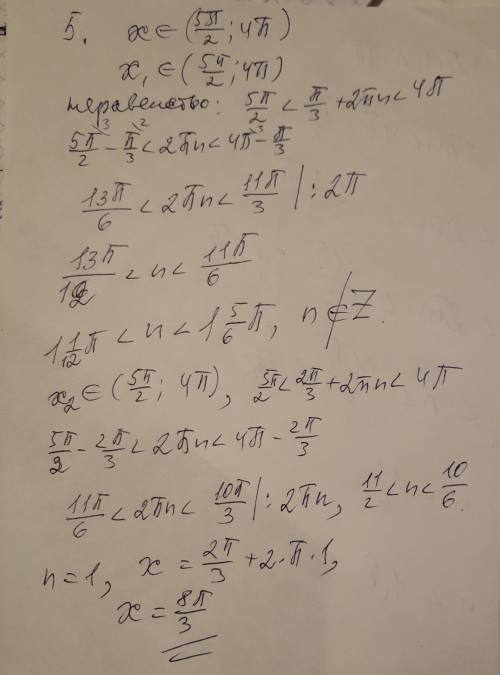 5. x ∈ (5π/2; 4π)
x₁ ∈ (5π/2; 4π)
неравенство: 5π/2 < π/3 + 2πn < 4π
5π/2 - π/3 < 2πn < 4π - π/3
13π/6 < 2πn < 11π/3 | : 2π
13π/12 < n < 11π/6
1 1/12 π < n < 1 5/6 π, n ∉ Z.
x₂ ∈ (5π/2; 4π), 5π/2 < 2π/3 + 2πn < 4π
5π/2 - 2π/3 < 2πn < 4π - 2π/3
11π/6 < 2πn < 10π/3 | : 2πn, 11/2 < n < 10/6.
n = 1, x = 2π/3 + 2·π·1,
x = 8π/3